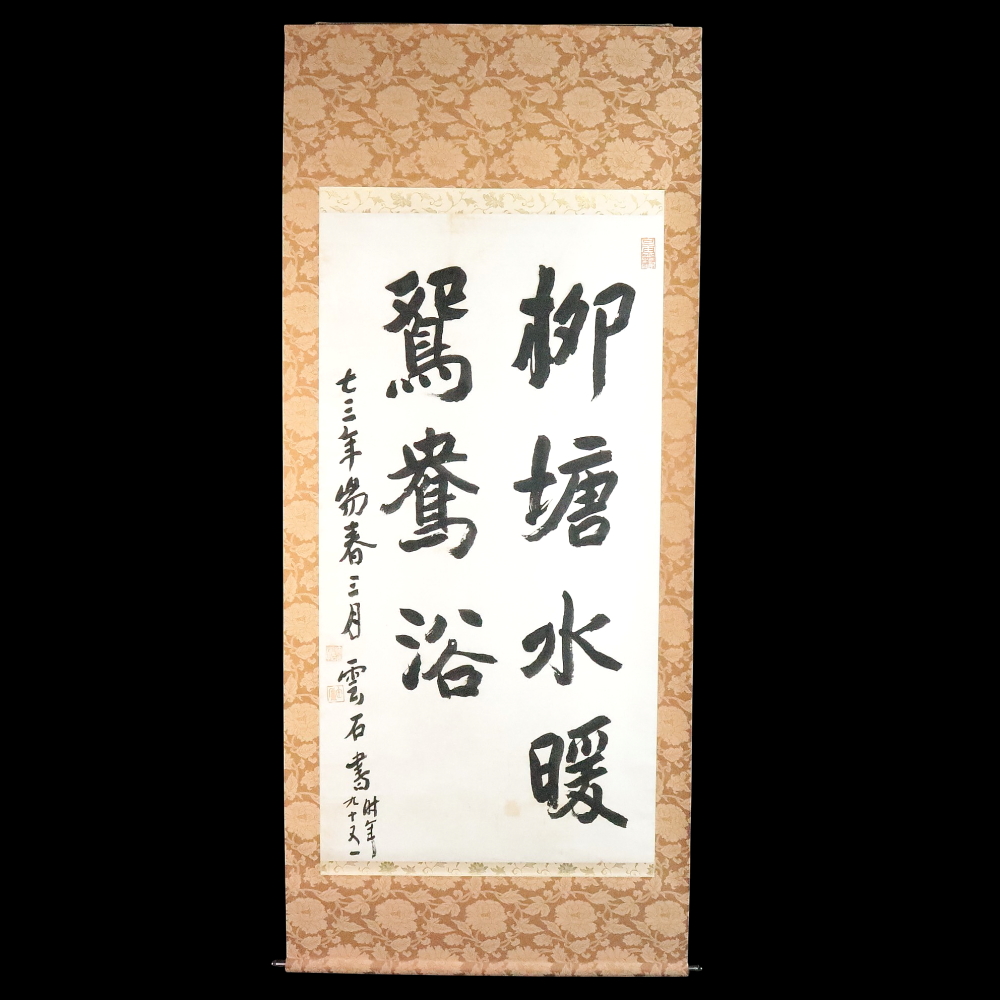 柳塘水暖
鴛鴦浴
七三年陽春三月 雲石書
时年
九十又一